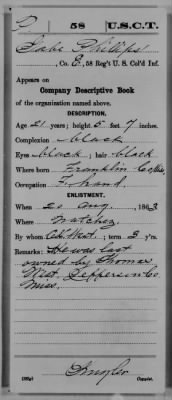 P 58 U.S.C.T.
Gabe Phillips
, Co. E, 58 Reg't U. S. Col'd Inf.
Appears on
Company Descriptive Book
of the organization named above.
DESCRIPTION.
Age 21 years; height 5 feet 7 inches.
Complexion black
Eyes black; hair black
Where born Franklin Co, Miss,
Occupation F. hand
ENLISTMENT.
When 20 Aug, 1863.
Where Natchez
By whom Capt. West.; term 3 y'rs.
Remarks: He was last
owned by Thomas
West Jefferson Co
Miss.
Copyist.